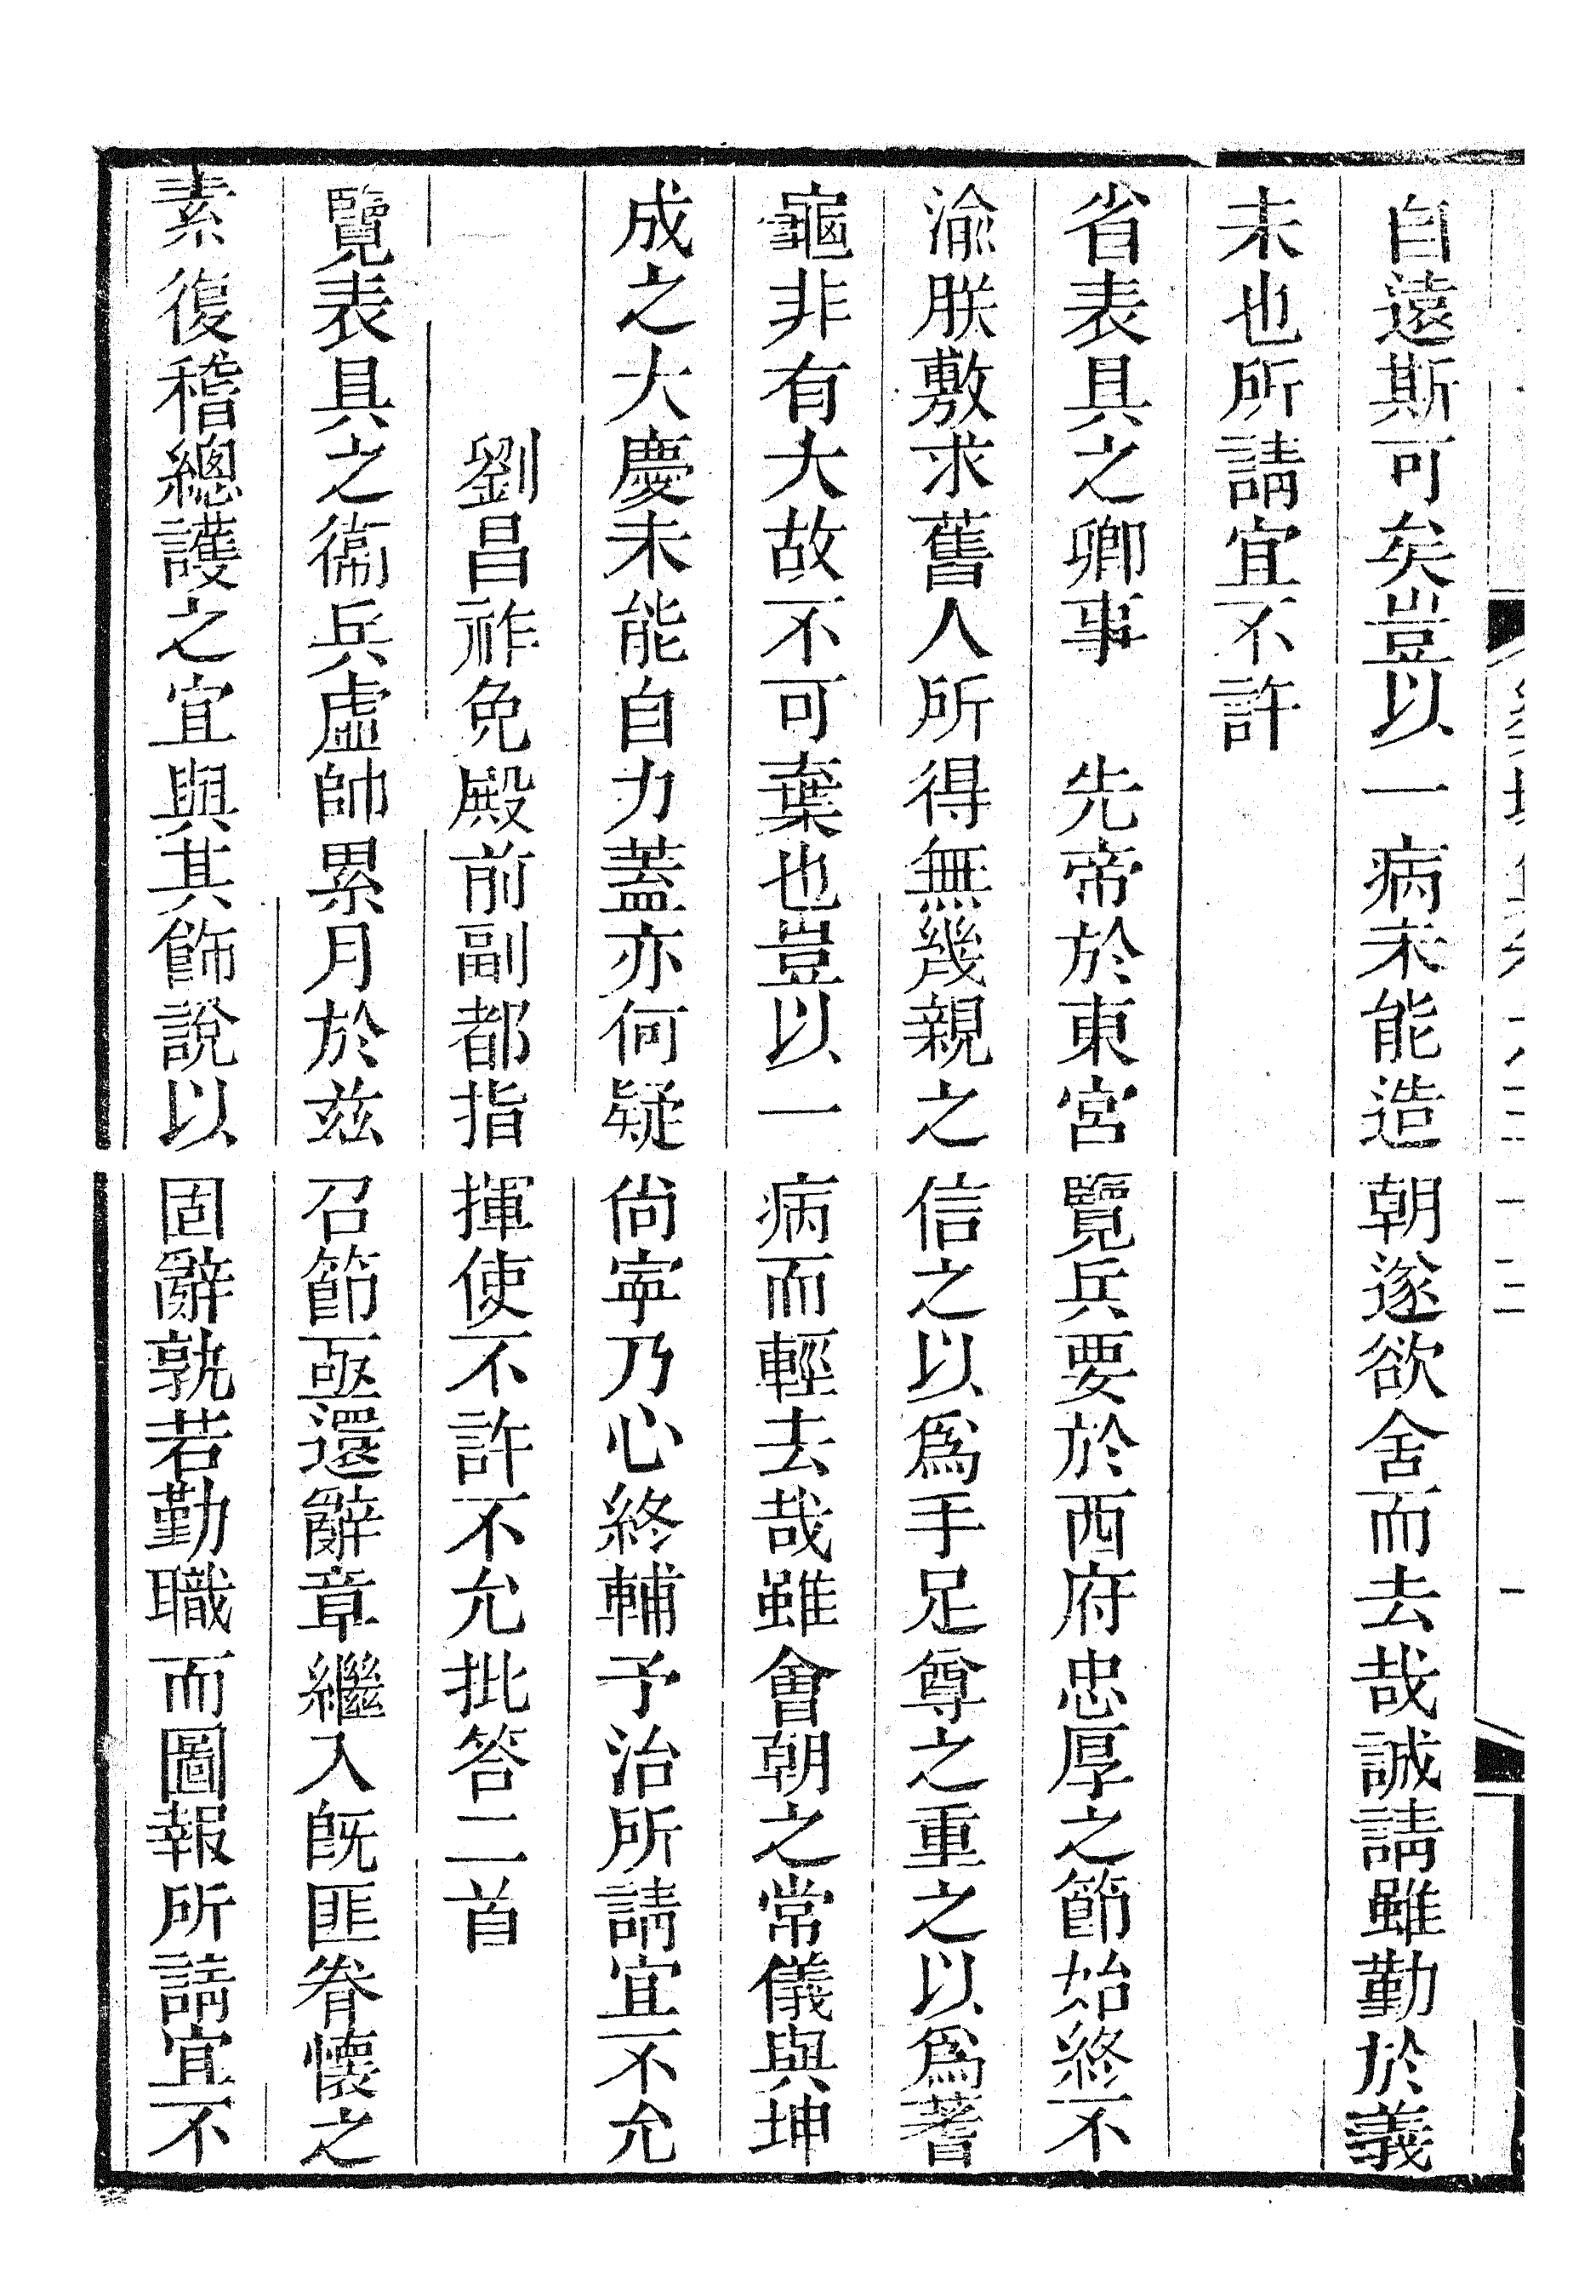 自遠斯可矣豈以一病未能造朝遂欲舍而去哉誠請雖勤於義
未也所請宜不許
省表具之卿事　先帝於東宮覽兵要於西府忠厚之節始終不
渝朕敷求舊人所得無幾親之信之以爲手足尊之重之以爲蓍
龜非有大故不可棄也豈以一病而輕去哉雖會朝之常儀與坤
成之大慶未能自力蓋亦何疑尙寧乃心終輔予治所請宜不允
劉昌祚免殿前副都指揮使不許不允批答二首
覽表具之衞兵虛帥累月於兹召節亟還辭章繼入旣匪眷懷之
素復稽總護之宜與其飾說以固辭孰若勤職而圖報所請宜不